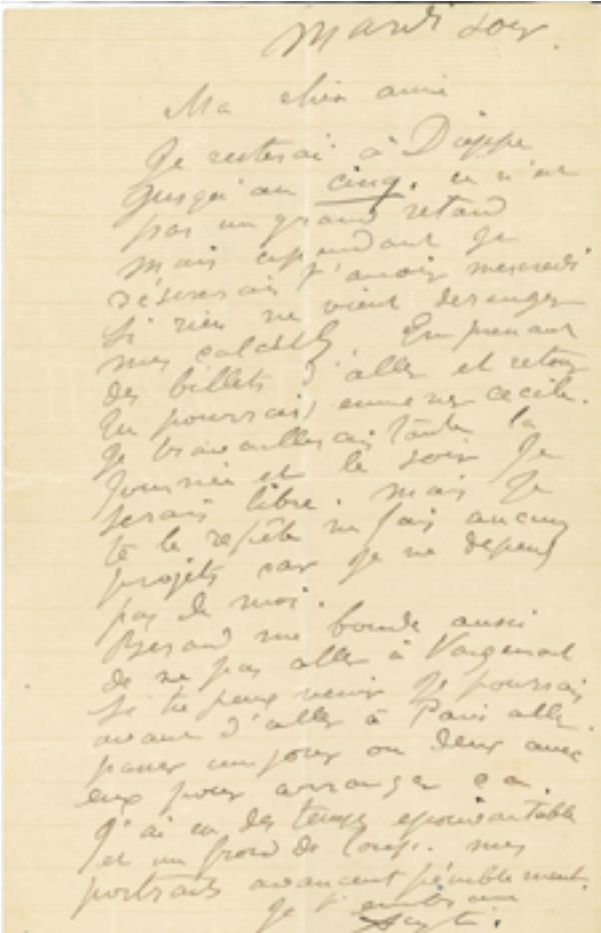 Mardi soir.
Ma chère amie
Je resterai à Dieppe
jusqu'au cinq. ce n'est
pas un grand retard
mais cependant je
désirerais t'avoir mercredi
si rien ne vient deranger
mes calculs. En prenant
des billets d'aller et retour
tu pourrais emmener cecile.
Je travaillerais toute la
journée et le soir je
serais libre. mais je
te le repète ne fais aucun
projets car je ne depend
pas de moi.
Berard me boude aussi
de ne pas aller à Vargemont
Si tu peux venir je pourrais
avant d'aller à Paris aller
passer un jour ou deux avec
eux pour arranger ça.
J'ai eu des temps epouvantable
et un froid de loup. mes
portraits avancent péniblement.
Je t'embrasse